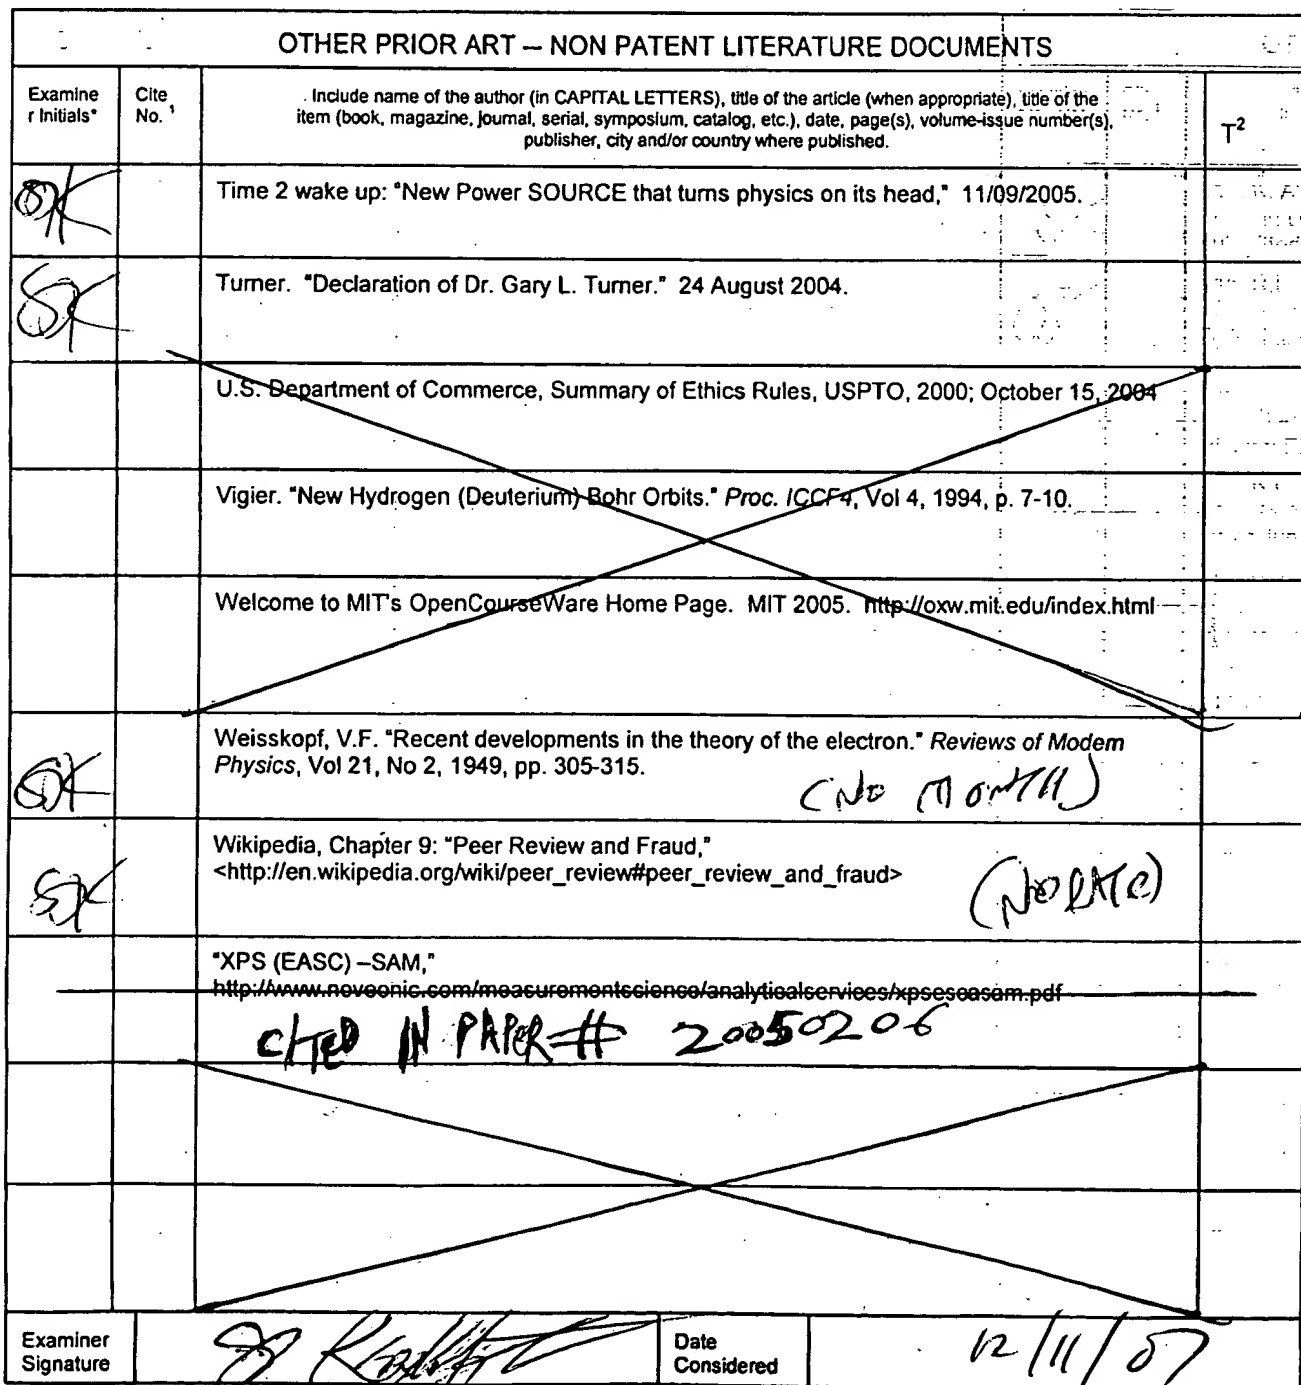 OTHER PRIOR ART – NON PATENT LITERATURE DOCUMENTS
Examine
r Initials*
Cite
No. 1
Include name of the author (in CAPITAL LETTERS), title of the article (when appropriate), title of the
item (book, magazine, journal, serial, symposium, catalog, etc.), date, page(s), volume-issue number(s),
publisher, city and/or country where published.
T2
Time 2 wake up: "New Power SOURCE that turns physics on its head," 11/09/2005.
Turner. "Declaration of Dr. Gary L. Turner." 24 August 2004.
U.S. Department of Commerce, Summary of Ethics Rules, USPTO, 2000; October 15, 2004
Vigier. "New Hydrogen (Deuterium) Bohr Orbits." Proc. ICCF4, Vol 4, 1994, p. 7-10.
Welcome to MIT's OpenCourseWare Home Page. MIT 2005. http://oxw.mit.edu/index.html
Weisskopf, V.F. "Recent developments in the theory of the electron." Reviews of Modern
Physics, Vol 21, No 2, 1949, pp. 305-315.
(No MONTH)
Wikipedia, Chapter 9: "Peer Review and Fraud,"
<http://en.wikipedia.org/wiki/peer_review#peer_review_and_fraud>
(NO DATE)
"XPS (EASC) –SAM,"
http://www.noveonic.com/measurementscience/analyticalservices/xpsescasam.pdf
CITED IN PAPER # 20050206
Examiner
Signature
Date
Considered
12/11/07